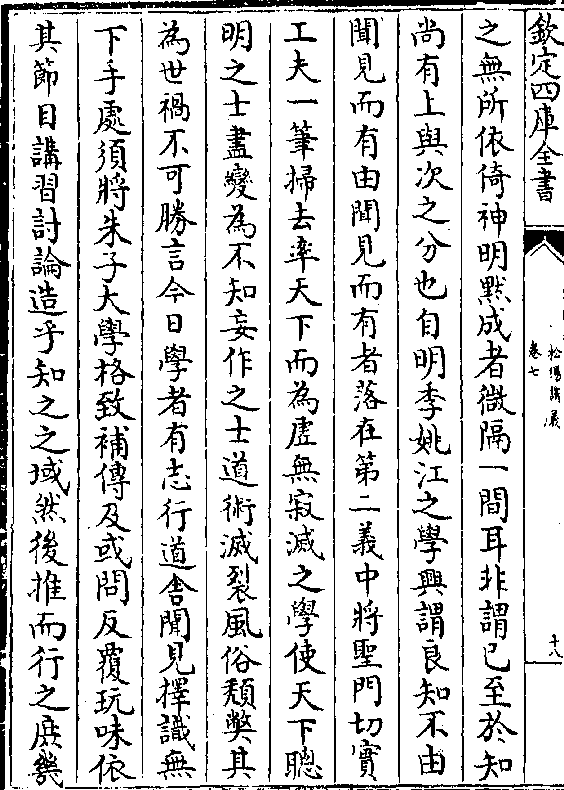 欽定四庫全書
松陽講義
卷七
十八
之無所依倚神明黙成者微隔一間耳非謂已至於知
尚有上與次之分也自明季姚江之學興謂良知不由
聞見而有由聞見而有者落在第二義中將聖門切實
工夫一筆掃去率天下而為虛無寂滅之學使天下聰
明之士盡變為不知妄作之士道術滅裂風俗頽弊其
為世禍不可勝言今日學者有志行道舎聞見擇識無
下手處須將朱子大學格致補傳及或問反覆玩味依
其節目講習討論造乎知之之域然後推而行之庶幾